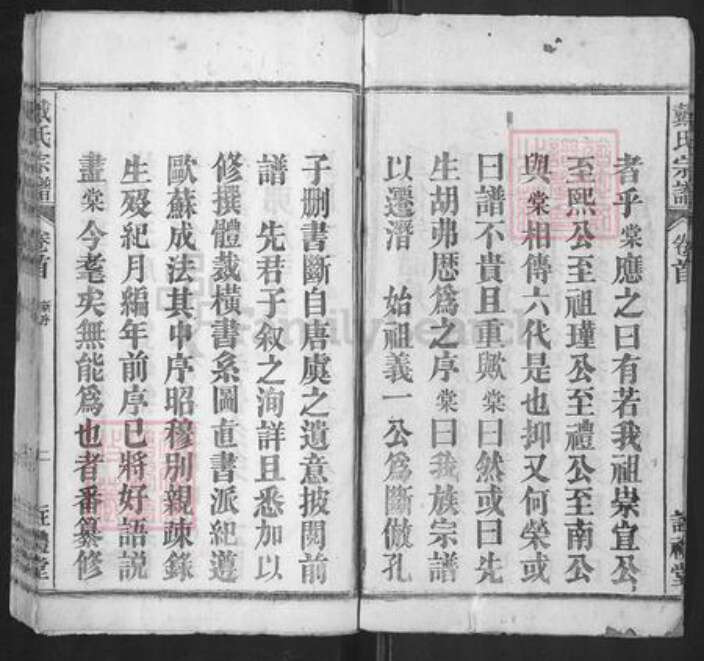 戴氏宗譜
卷首
者乎棠應之曰有若我祖崇宜公
至熙公至祖瑾公至禮公至南公
與棠相傳六代是也抑又何榮或
曰譜不貴且重歟棠曰然或曰先
生胡弗厯為之序棠曰我族宗譜
以遷潛 始祖義一公為斷倣孔
子刪書斷自唐虞之遺意披閱前
譜 先君子叙之洵詳且悉加以
修撰體裁橫書系圖直書派紀遵
歐蘇成法其中序昭穆別親疎錄
生歿紀月編年前序已將好語說
盡棠今耄矣無能為也者番纂修
戴氏宗譜
卷首
二